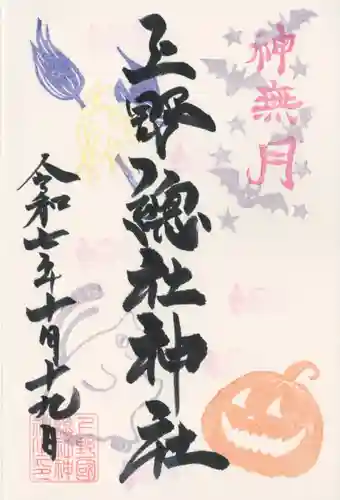 神無月
上野總社神社
令和七年十月十九日